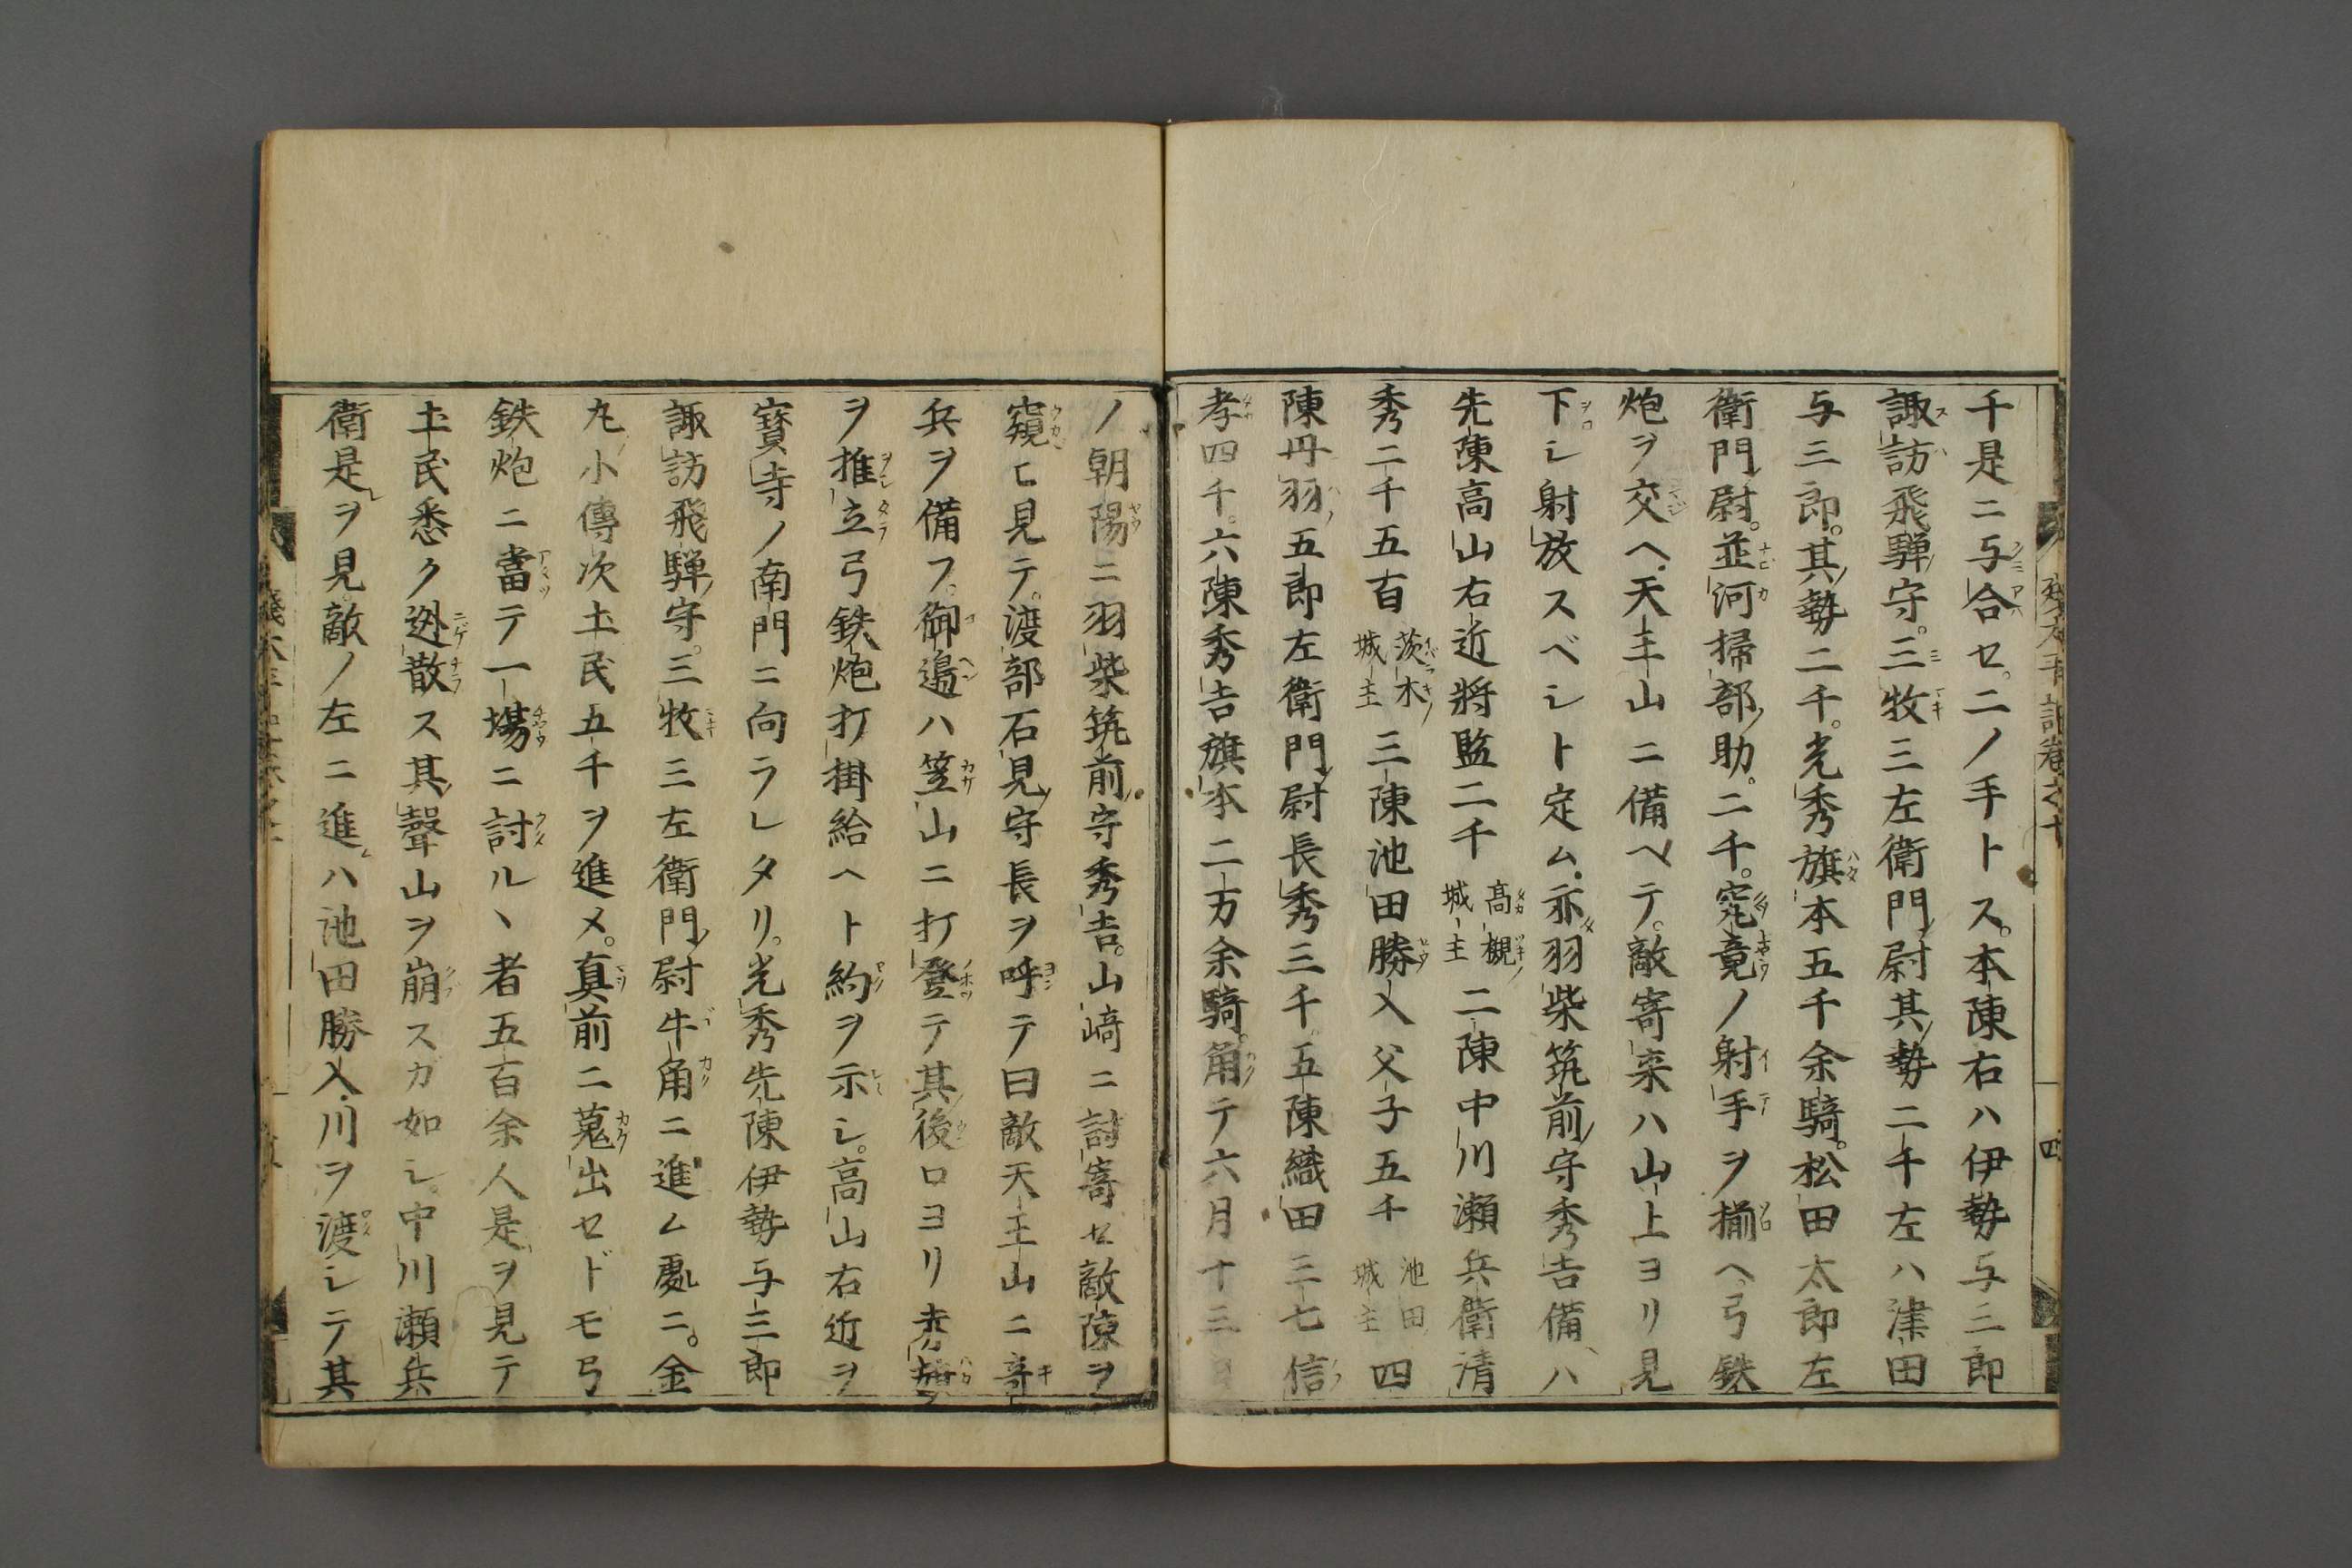 千是ニ与合セ。二ノ手トス。本陳右ハ伊勢与三郎
諏訪飛騨守。三牧三左衛門尉其勢二千左ハ津田
与三郎。其勢二千。光秀旗本五千余騎。松田太郎左
衛門尉。並河掃部助。二千。究竟ノ射手ヲ揃へ。弓鉄
炮ヲ交へ。天王山ニ備ヘテ。敵寄来ハ山上ヨリ見
下シ射放スベシト定ム。亦羽柴筑前守秀吉備ハ
先陳高山右近将監二千高槻城主二陳中川瀬兵衛清
秀二千五百茨木城主三陳池田勝入父子五千池田城主四
陳丹羽五郎左衛門尉長秀三千。五陳織田三七信
孝四千。六陳秀吉旗本二万余騎。角テ六月十三
ノ朝陽ニ羽柴筑前守秀吉。山崎ニ討寄セ敵陳ヲ
窺ヒ見テ。渡部石見守長ヲ呼テ曰敵天王山ニ
兵ヲ備フ。御邉ハ笠山ニ打登テ其後ロヨリ
ヲ推立弓鉄炮打掛給ヘト約ヲ示シ。高山右近ヲ
寳寺ノ南門ニ向ラレタリ。光秀先陳伊勢与三郎
諏訪飛騨守。三牧三左衛門尉牛角ニ進ム處ニ。金
丸小傳次土民五千ヲ進メ。真前ニ蒐出セドモ弓
鉄炮ニ當テ一塲ニ討ルヽ者五百余人是ヲ見テ
土民悉ク迯散ス其聲山ヲ崩スガ如シ。中川瀬兵
衛是ヲ見。敵ノ左ニ進ハ池田勝入。川ヲ渡シテ其